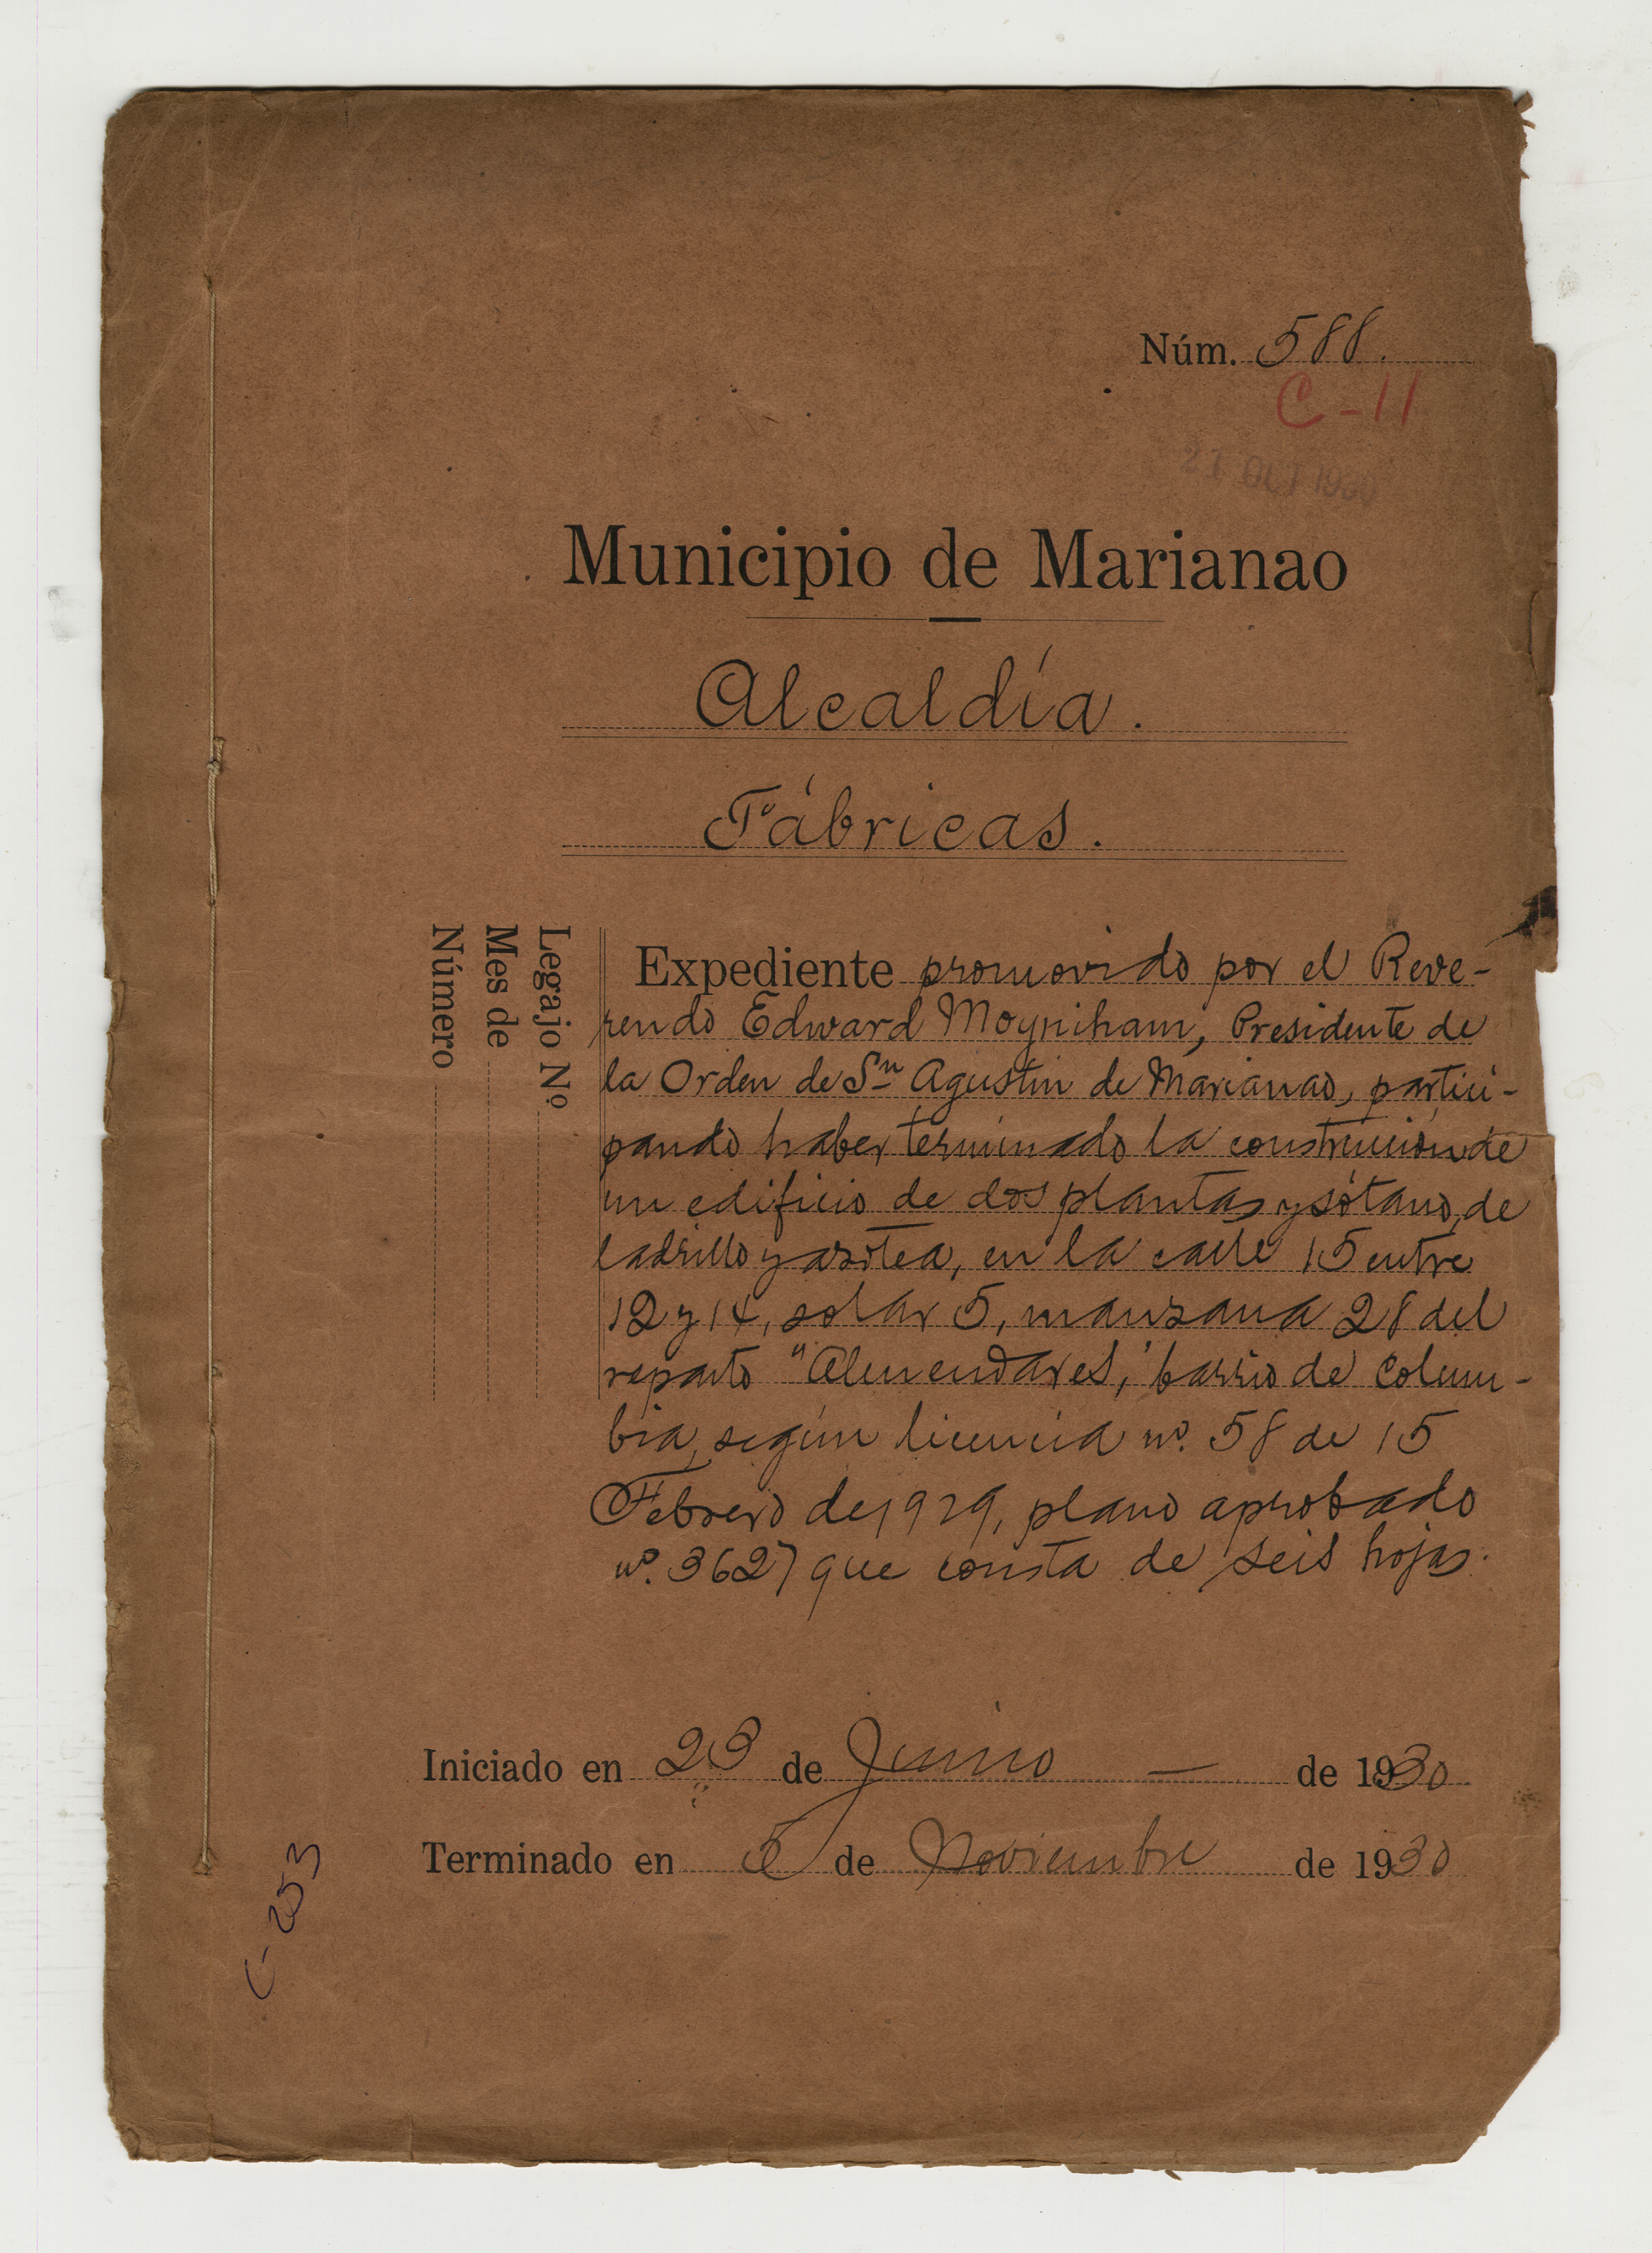 Núm. 588.
C-11
21 OCT 1930
Municipio de Marianao
Alcaldía.
Fábricas.
Legajo Nº
Mes de
Número
Expediente promovido por el Reve-
rendo Edward Moyniham, Presidente de
la Orden de Sn Agustin de Marianao, partici-
pando haber terminado la construcción de
un edificio de dos plantas y sótano, de
ladrillo y azotea, en la calle 15 entre
12 y 14, solar 5, manzana 28 del
reparto "Almendares," barrio de Colum-
bia, según licencia nº. 58 de 15
Febrero de 1929, plano aprobado
nº. 3627 que consta de seis hojas.
Iniciado en 23 de Junio — de 1930
Terminado en 5 de Noviembre de 1930
C-253